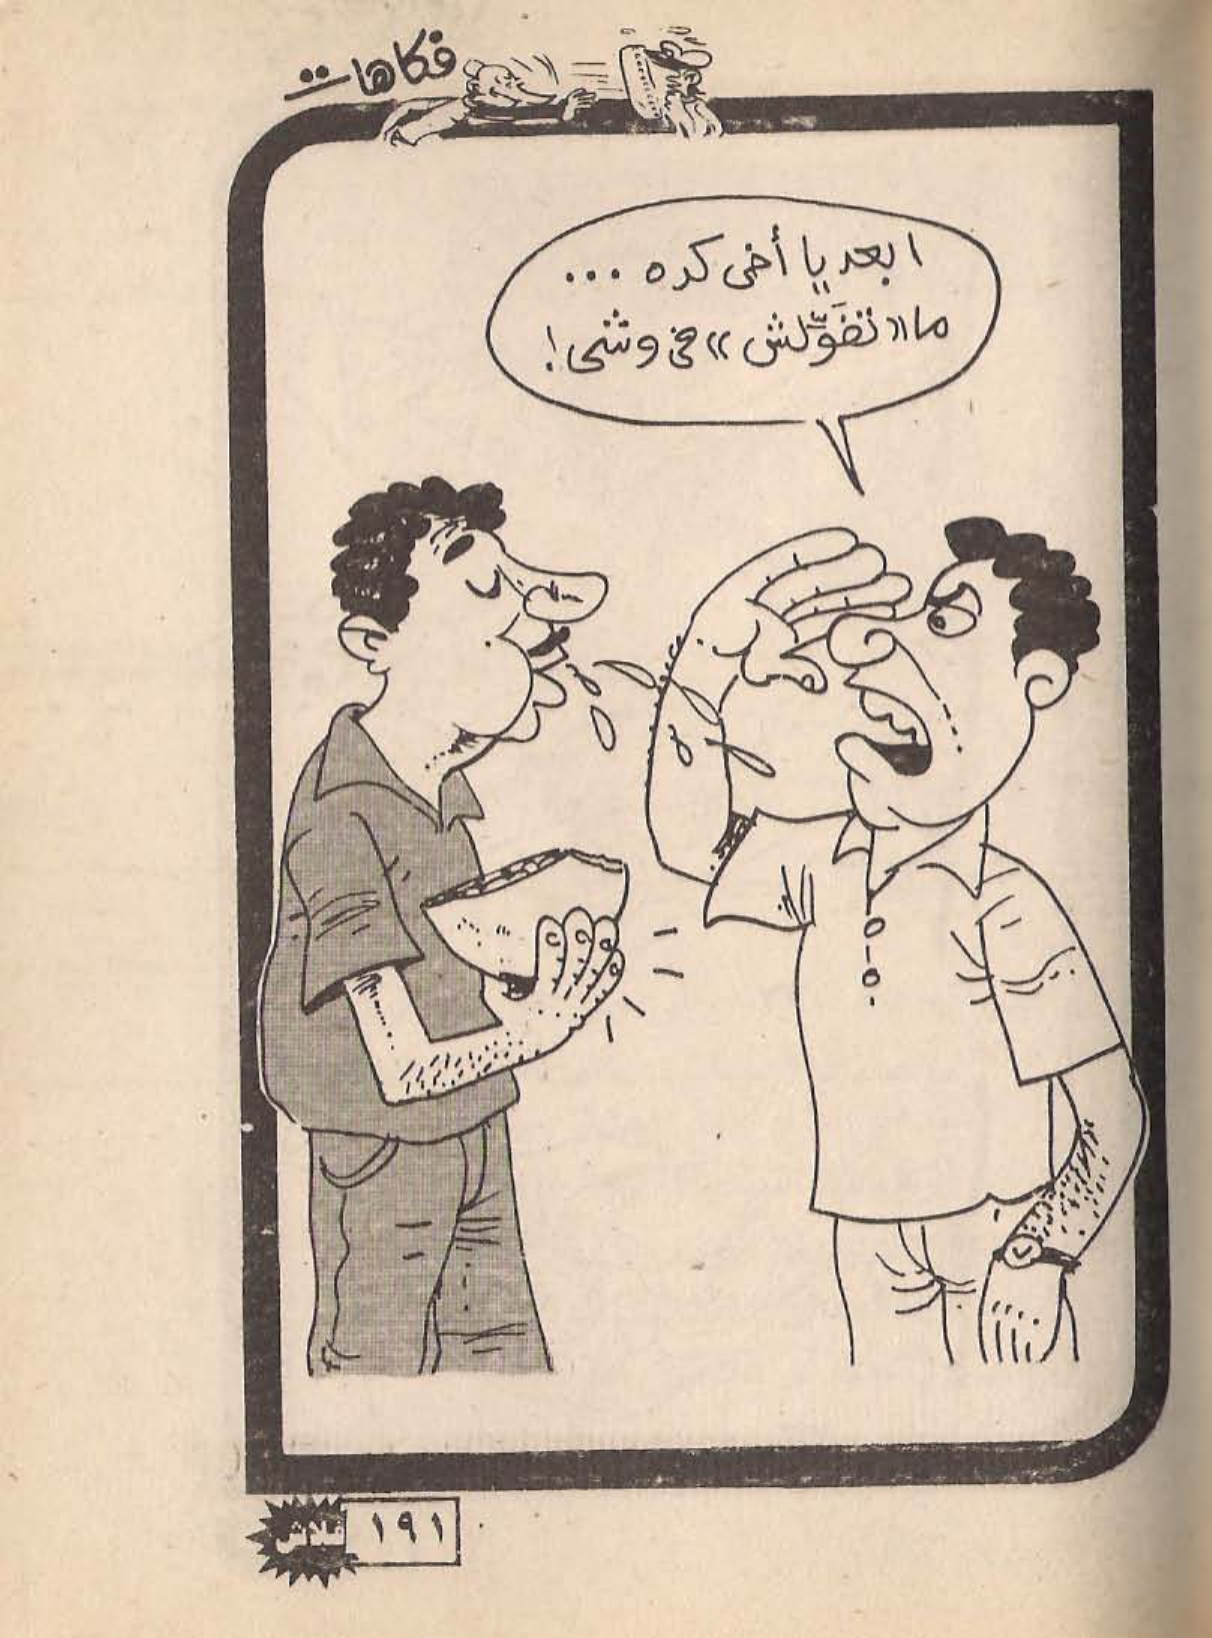 فكاهات
ابعد يا أخى كده ...
ما «تفَوِّلش» فى وشى!
فلاش
١٩١